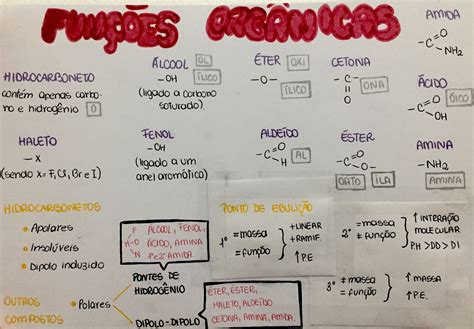 FUNÇÕES ORGÂNICAS
HIDROCARBONETO
contém apenas carbo-
no e hidrogênio O
ÁLCOOL OL
-OH ÍLICO
(ligado a carbono
saturado)
ÉTER OXI
-O- ÍLICO
CETONA
-C-
O
ONA
AMIDA
-C=O
NH₂
ÁCIDO
-C=O
OH
ÓICO
HALETO
- X
(sendo X= F, Cl, Br e I)
FENOL
-OH
(ligado a um
anel aromático)
ALDEÍDO
-C=O
H
AL
ÉSTER
-C=O
O-
OATO ILA
AMINA
-NH₂
AMINA
HIDROCARBONETOS
• Apolares
• Insolúveis
• Dipolo induzido
OUTROS
COMPOSTOS
• Polares
F
H-O
N
ÁLCOOL, FENOL,
ÁCIDO, AMINA
1ª e 2ª AMIDA.
PONTES DE
HIDROGÊNIO
DIPOLO-DIPOLO
ÉTER, ÉSTER,
HALETO, ALDEÍDO
CETONA, AMINA, AMIDA.
PONTO DE EBULIÇÃO
1º = massa
= função
+LINEAR
-RAMIF.
↑PE
2º = massa
≠ função
↑ INTERAÇÃO
MOLECULAR
PH > DD > DI
3º ≠ massa
= função
↑ MASSA
↑ PE